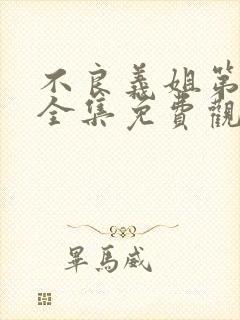 不良義姐第
全集免費觀
畢馬威